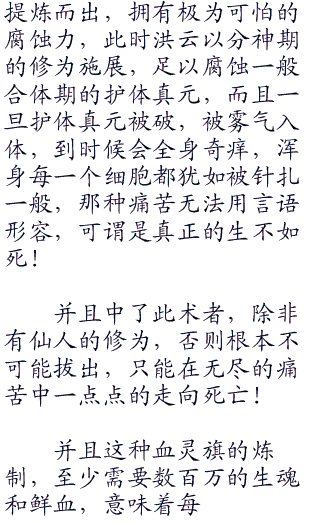 提炼而出，拥有极为可怕的
腐蚀力，此时洪云以分神期
的修为施展，足以腐蚀一般
合体期的护体真元，而且一
旦护体真元被破，被雾气入
体，到时候会全身奇痒，浑
身每一个细胞都犹如被针扎
一般，那种痛苦无法用言语
形容，可谓是真正的生不如
死！
并且中了此术者，除非
有仙人的修为，否则根本不
可能拔出，只能在无尽的痛
苦中一点点的走向死亡！
并且这种血灵旗的炼
制，至少需要数百万的生魂
和鲜血，意味着每